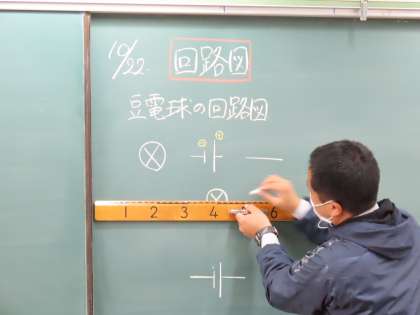 10/22.
回路図
豆電球の回路図
⊖ ⊕
1 2 3 4 6